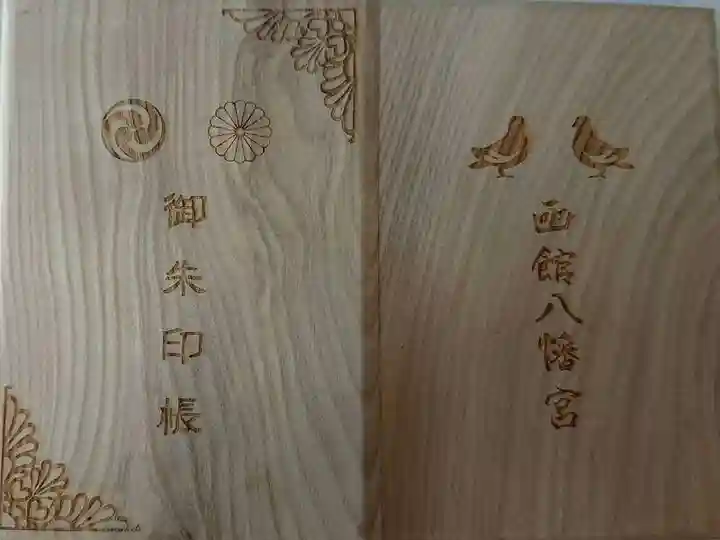 御朱印帳
函館八幡宮